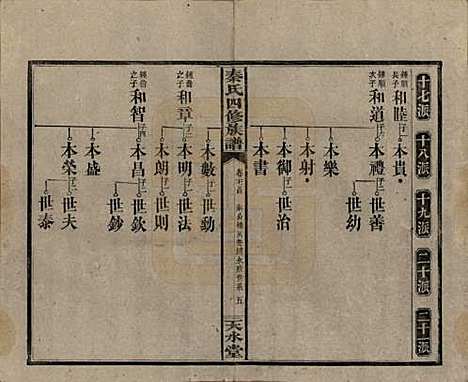 十七派
十八派
十九派
二十派
三十派
鍾順長子
和睦
木貴
鍾順次子
和道
木禮
世善
世幼
木樂
木射
木御
世治
木書
秦氏四修族譜
五
天水堂
木數
世勳
鍾喬之子
和章
木明
世法
木朗
世則
之子
和智
木昌
世欽
世鈔
木盛
木榮
世夫
世泰